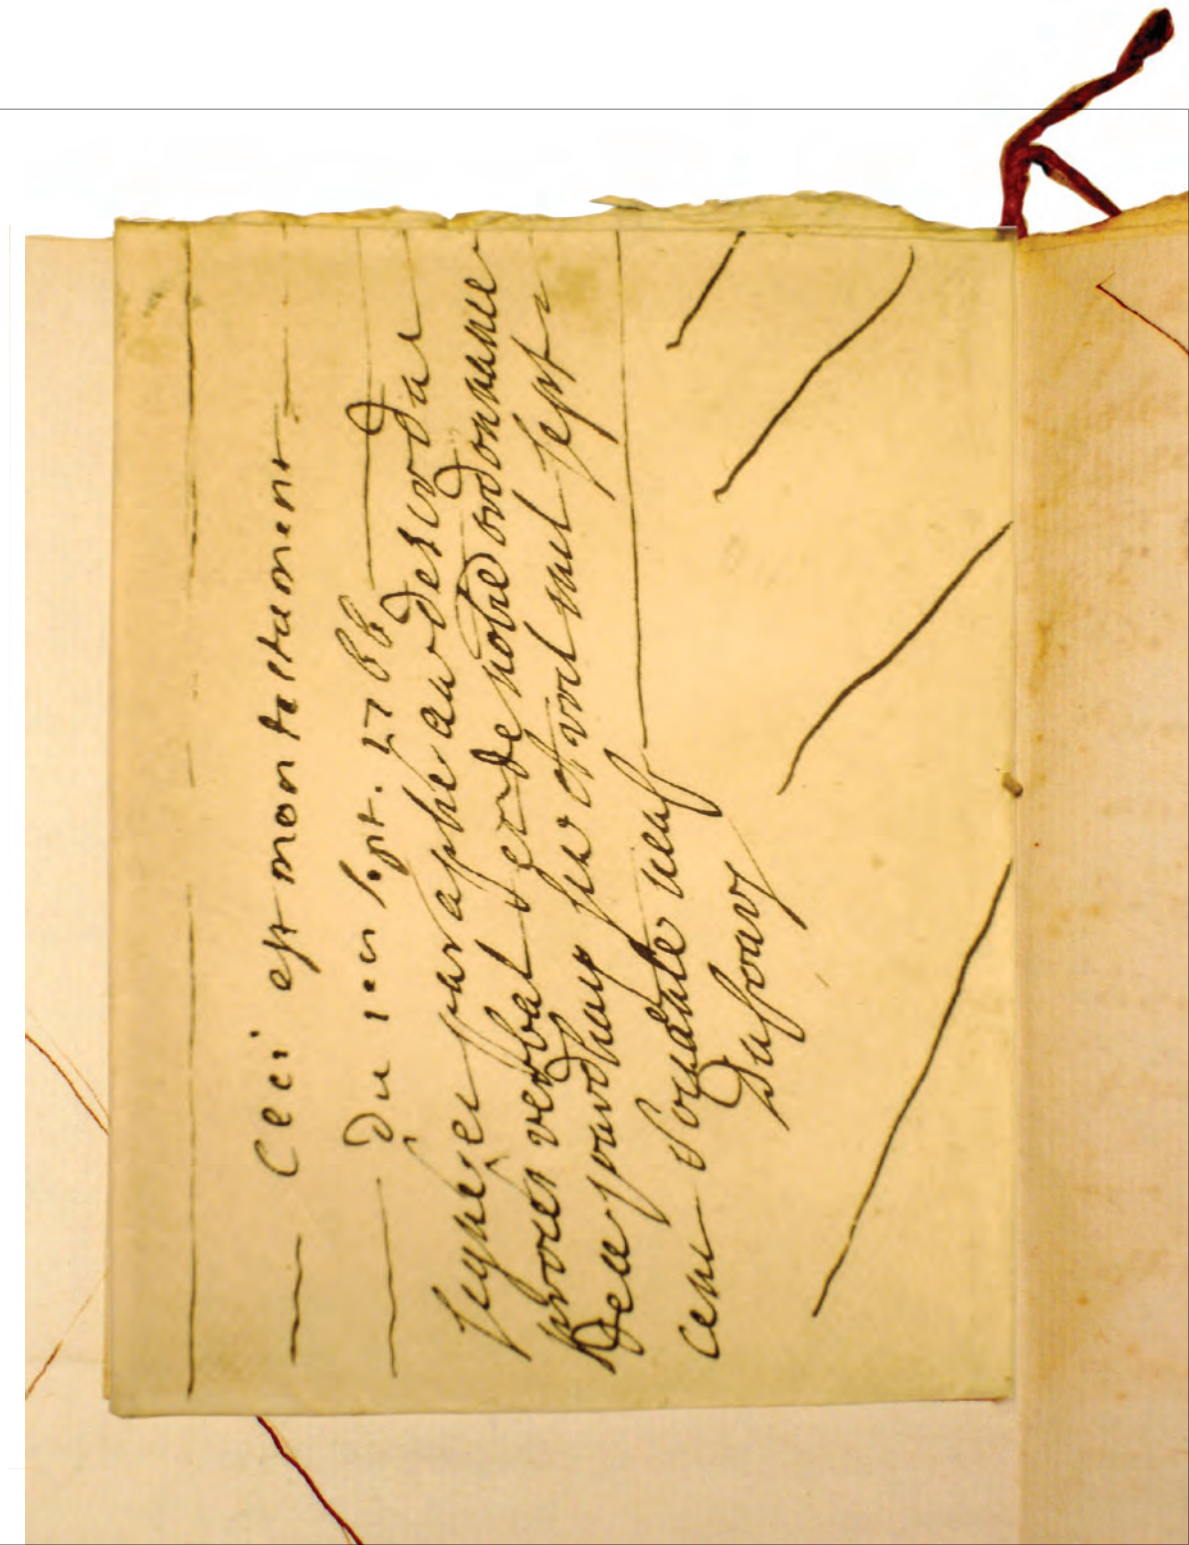 Ceci est mon testament
Du 1er sept. 1766
Signé et paraphé au desir du
procès verbal et de notre ordonnance
De ce jourdhuy huit avril mil sept
cent soixante neuf
Dufour